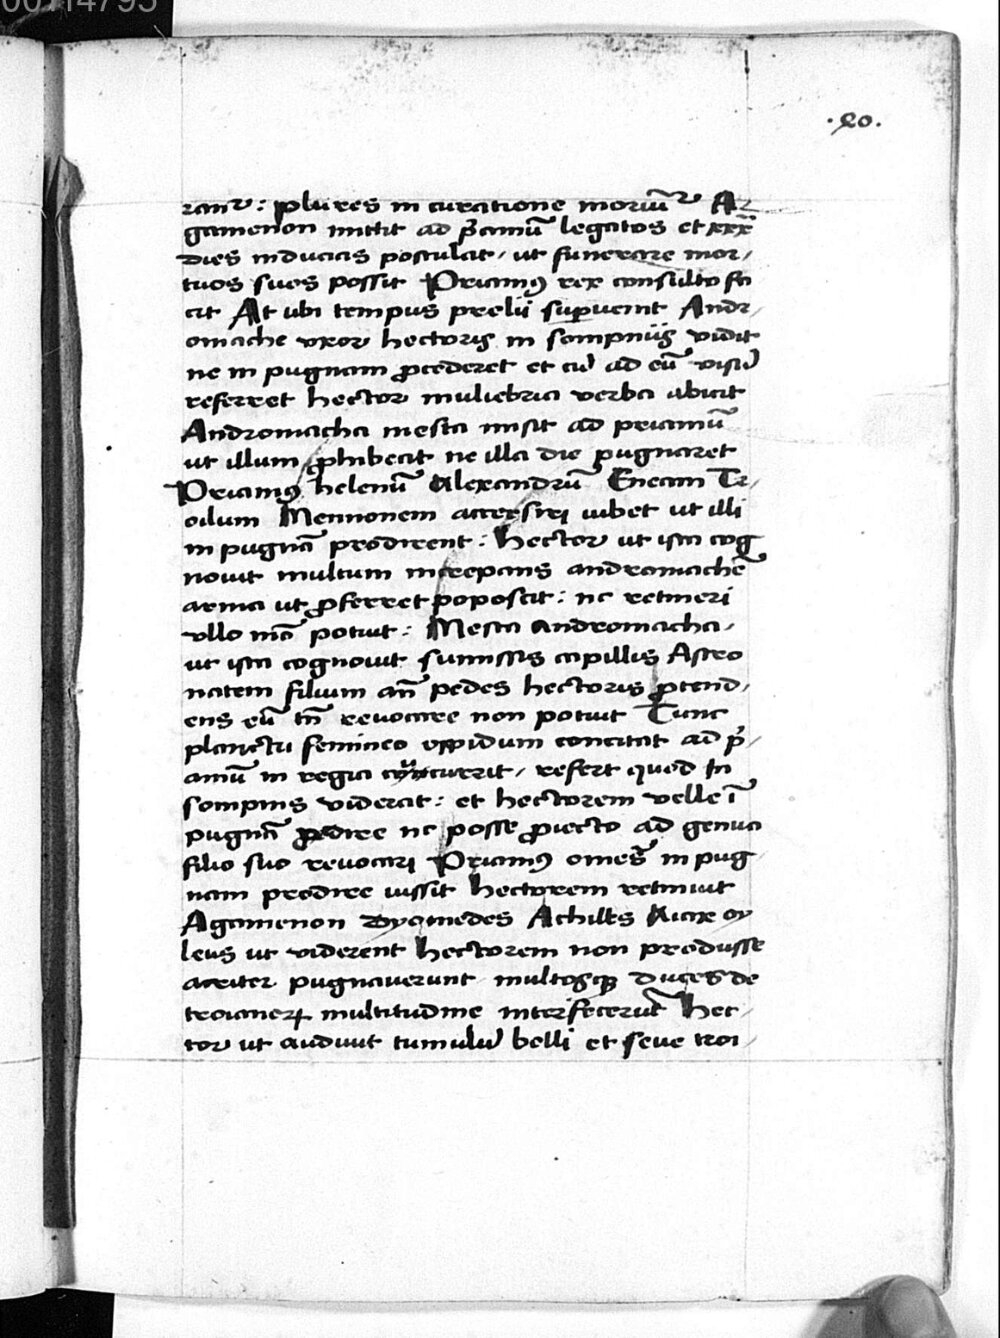 00114795
.20.
rantᷣ : plures in curatione moriūtᷣ A
gamenon mittit ad p̄amū legatos et xxx
dies inducias postulat / ut funerare mor /
tuos suos possit Priamꝰ rex consulto fa
cit At ubi tempus prelii supuenit Andr /
omache uxor hectoris in sompniis vidit
ne in pugnam ꝓcederet et cū ad eū visū
referret hector muliebria verba abicit
Andromacha mesta misit ad priamū
ut illum ꝓhibeat ne illa die pugnaret
Priamꝰ helenū Alexandrū Eneam Tr /
oilum Mennonem accersiri iubet ut illi
in pugnā prodirent : hector ut ista cog
novit multum increpans andromachē
arma ut ꝓferret poposcit : nc retineri
ullo mō potuit : Mesta Andromacha /
ut ista cognovit sumissis capillis Astio
natem filium añ pedes hectoris ꝓtend /
ens eū tñ revocare non potuit Tunc
planctu femineo oppidum concitat ad p̄ /
amū in regia currit / refert quod In
sompnis viderat : et hectorem velle ī
pugnā ꝓdire nc posse ꝓiecto ad genua
filio suo revocari Priamꝰ omēs in pug
nam prodire iussit hectorem retinuit
Agamenon Dyomedes Achilles Aiax oy
leus ut viderent hectorem non prodisse
acriter pugnaverunt multosqꝫ duces de
troianoꝝ multitudine interfecerūt hec /
tor ut audivit tumulū belli et seve troi /